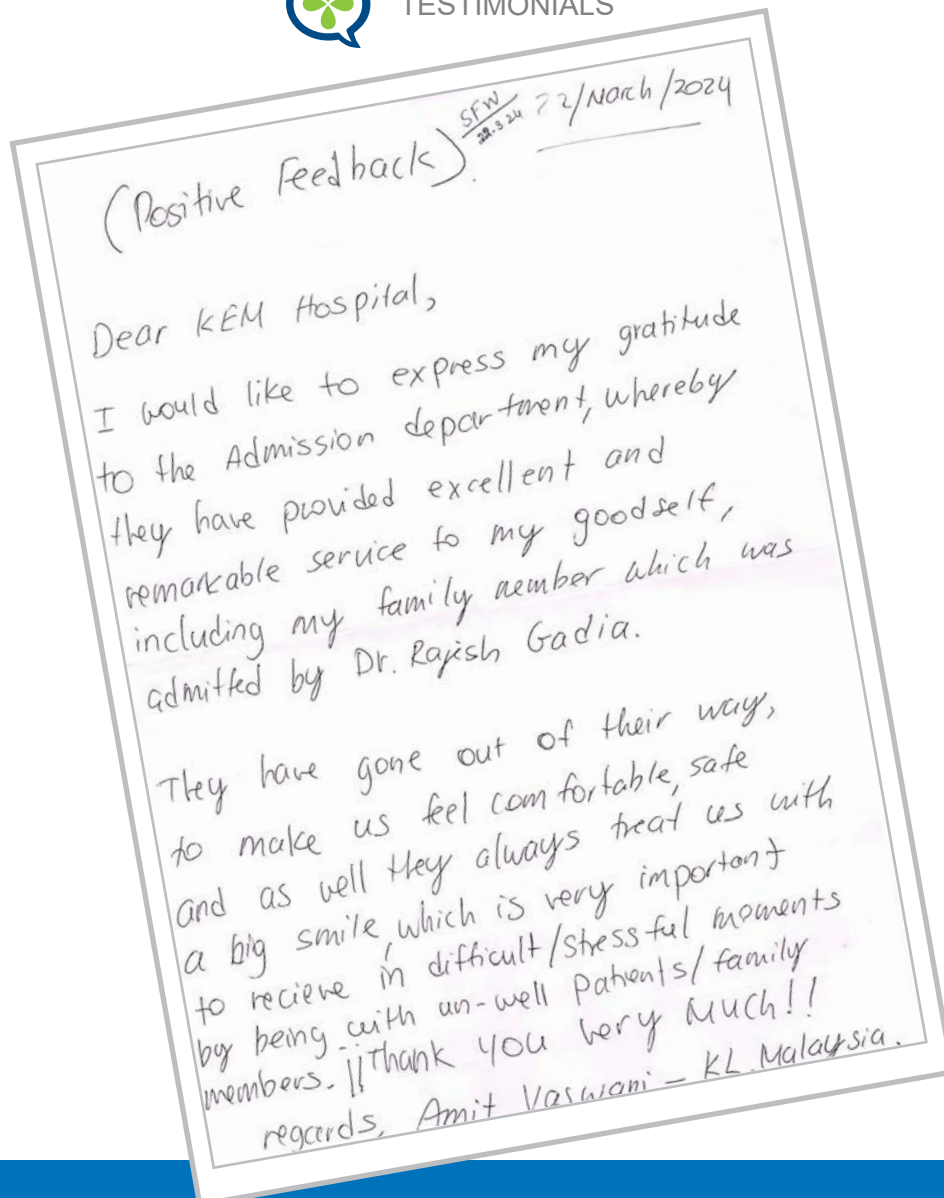 TESTIMONIALS
SFW
22.3.24
22/March/2024
(Positive Feedback).
Dear KEM Hospital,
I would like to express my gratitude
to the Admission department, whereby
they have provided excellent and
remarkable service to my goodself,
including my family member which was
admitted by Dr. Rajesh Gadia.
They have gone out of their way,
to make us feel comfortable, safe
and as well they always treat us with
a big smile, which is very important
to recieve in difficult/stressful moments
by being with un-well Patients/family
members. !!Thank you very Much!!
regards, Amit Vaswani - KL. Malaysia.